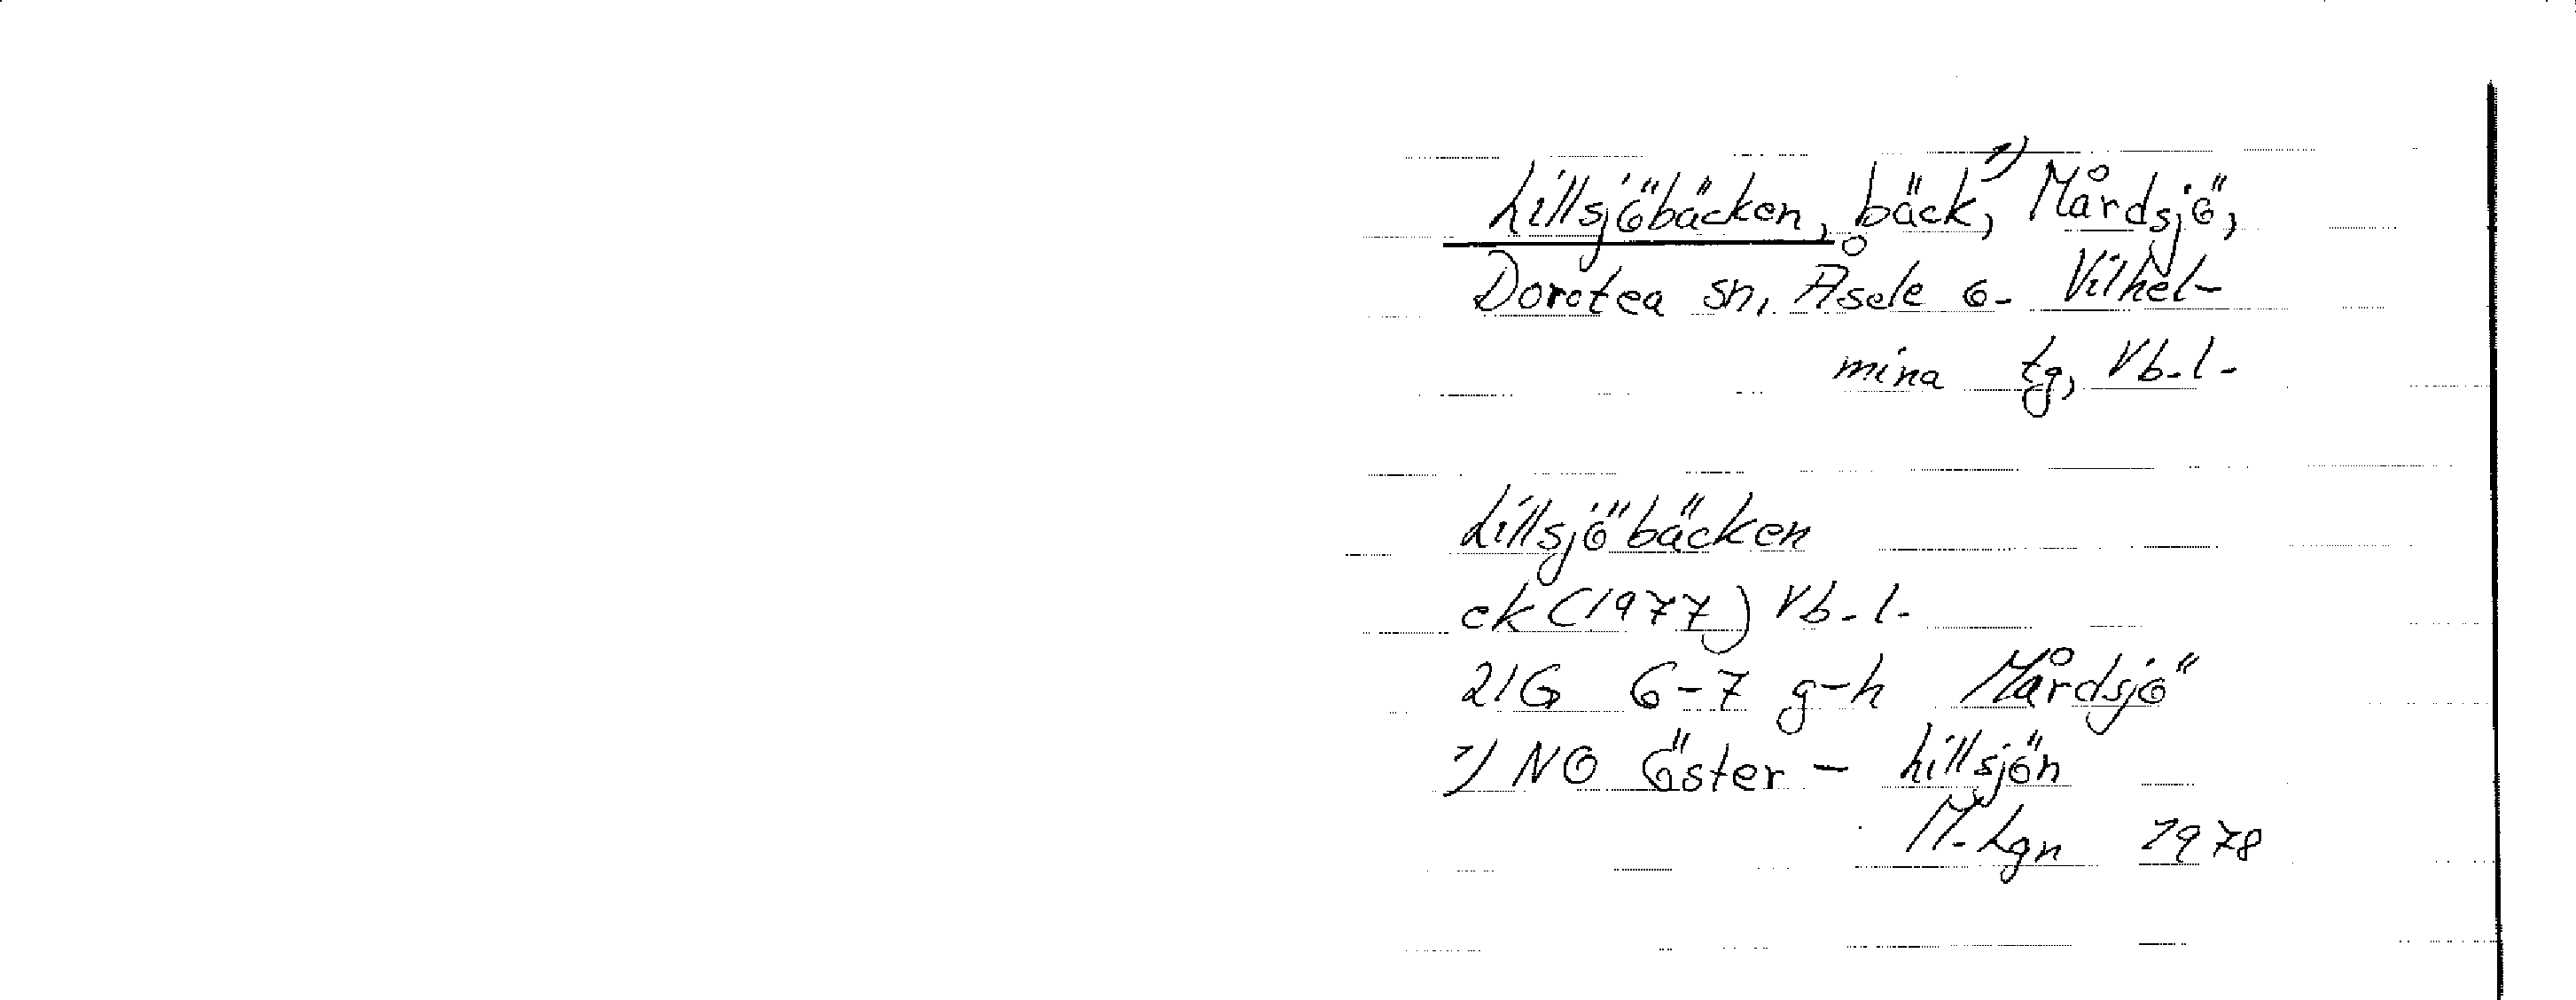 Lillsjöbäcken, bäck,¹⁾ Mårdsjö,
Dorotea sn, Åsele o. Vilhel-
mina tg, Vb. l.
Lillsjöbäcken
ek (1977) Vb. l.
21G 6-7 g-h Mårdsjö
¹⁾ NO Öster - Lillsjön
M. Lgn 1978